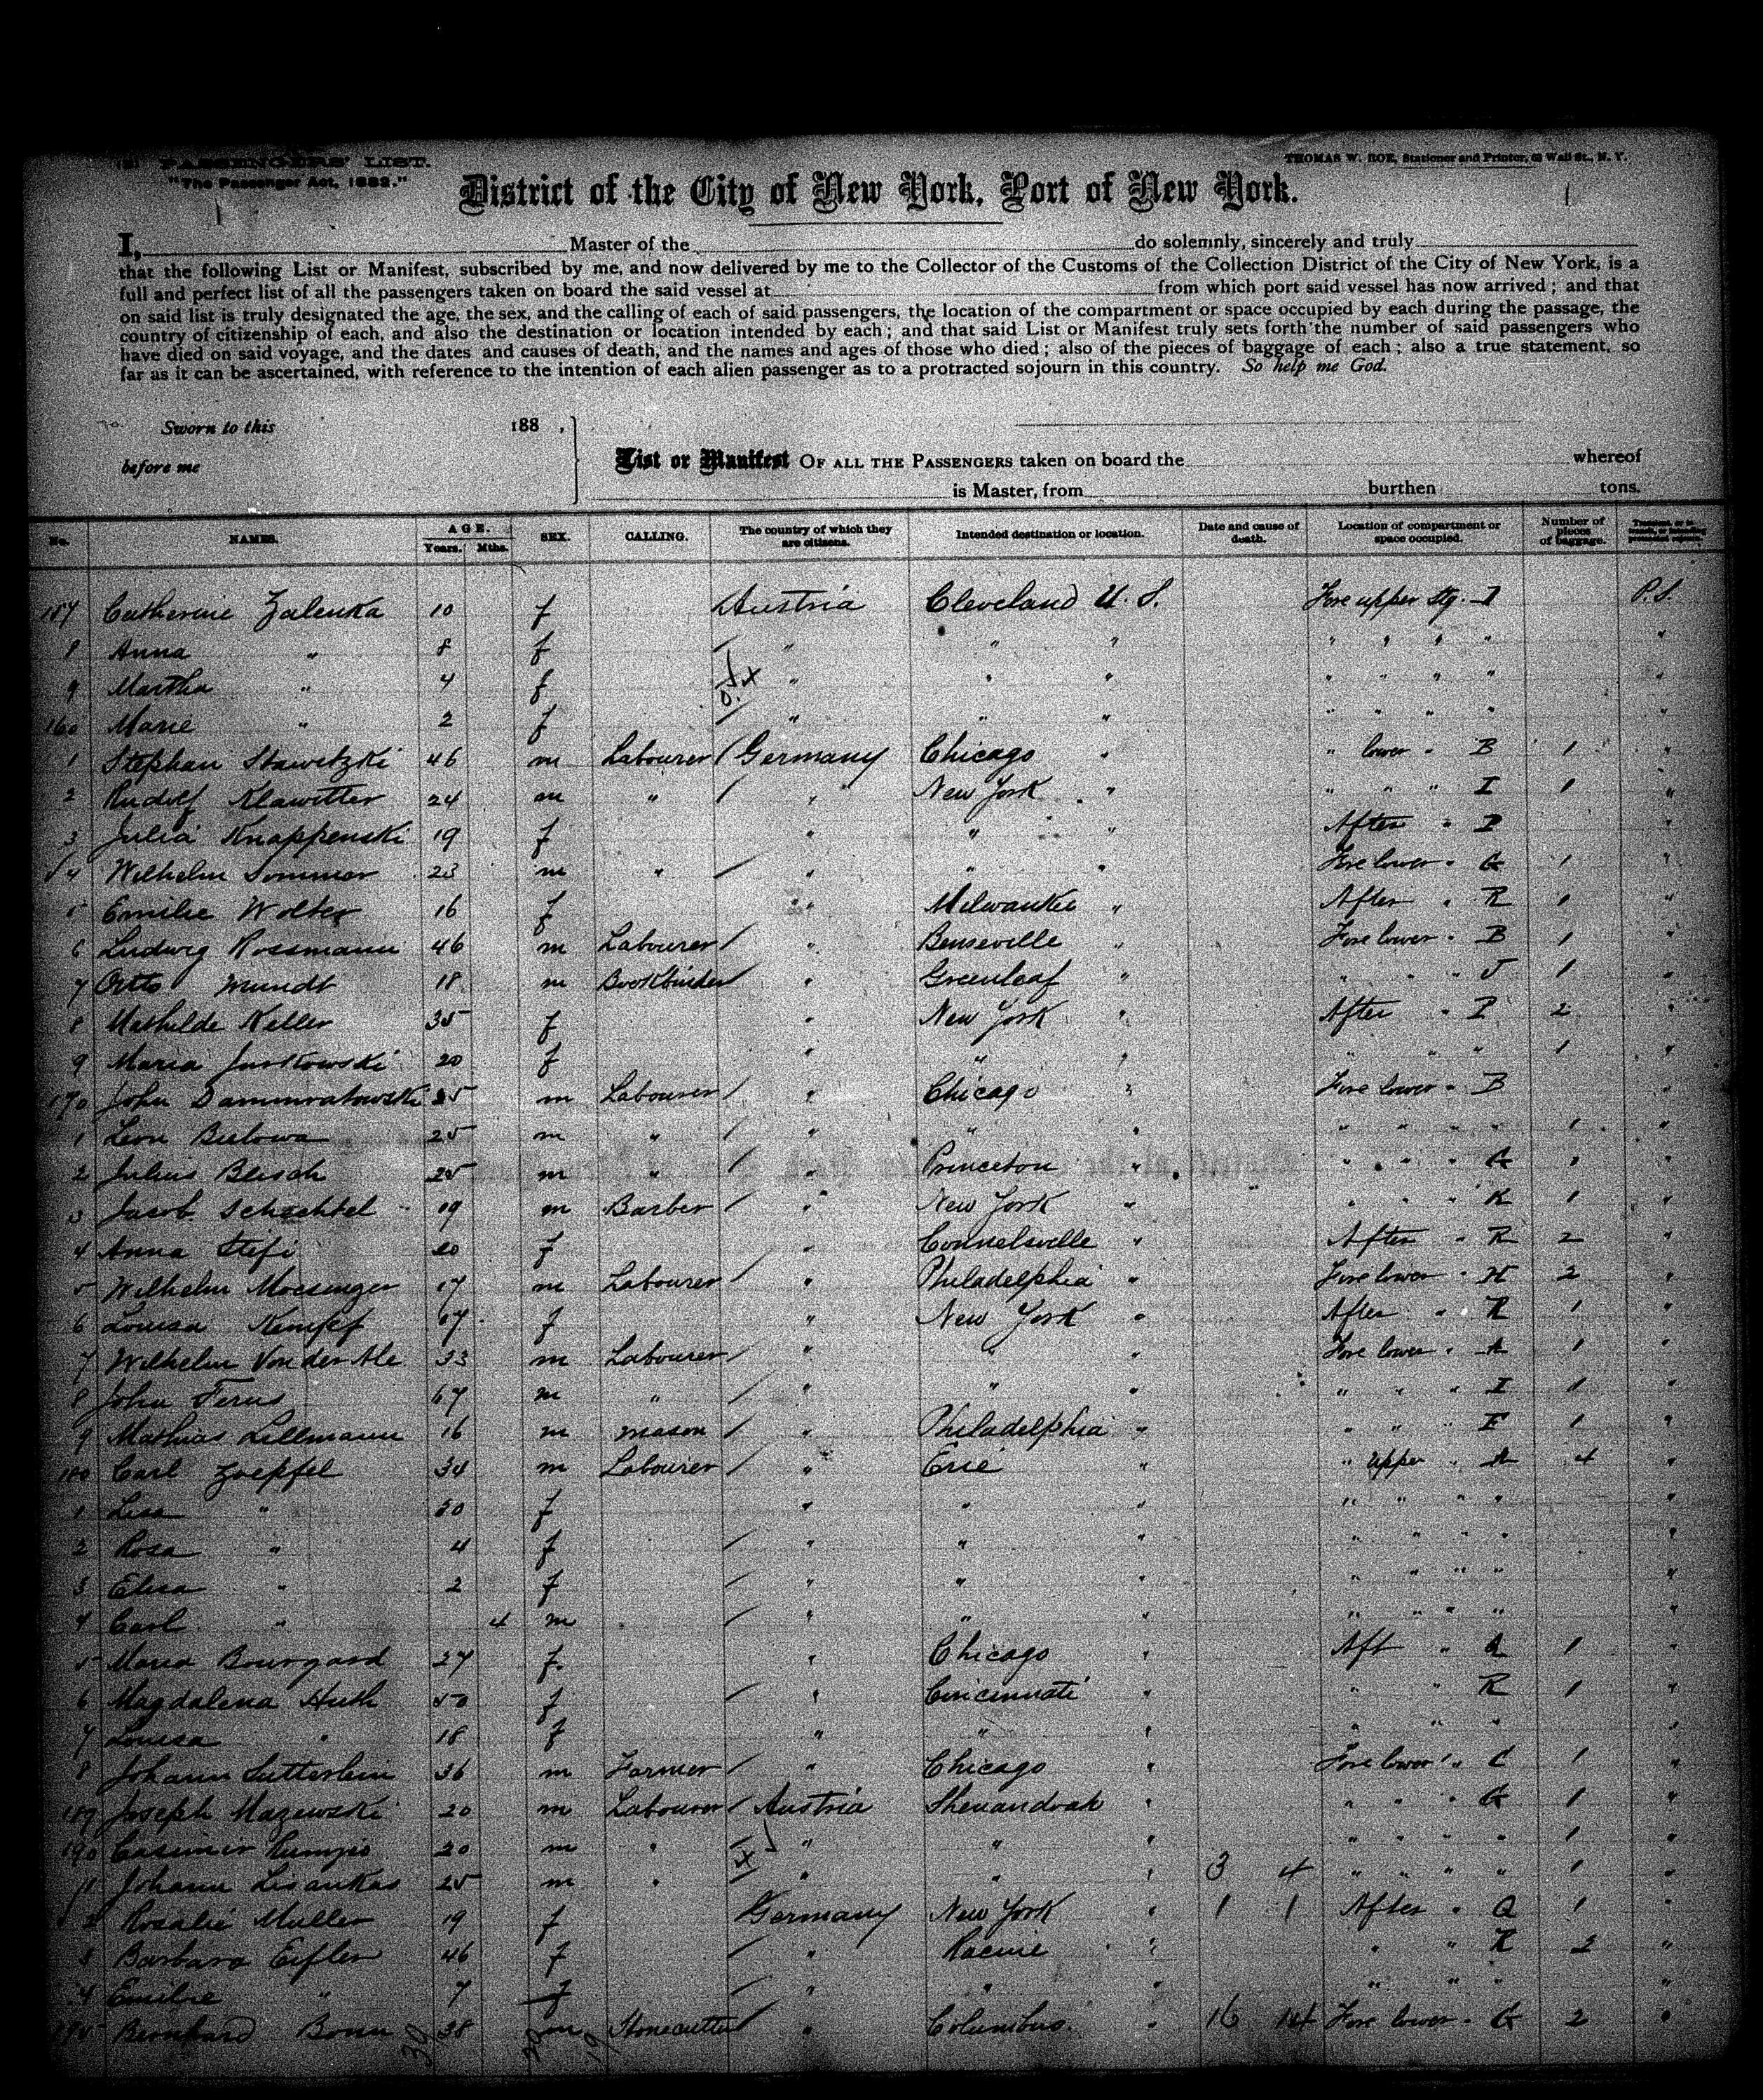 PASSENGERS' LIST.
"The Passenger Act, 1882."
THOMAS W. ROE, Stationer and Printer, 62 Wall St., N. Y.
District of the City of New York, Port of New York.
I, Master of the do solemnly, sincerely and truly
that the following List or Manifest, subscribed by me, and now delivered by me to the Collector of the Customs of the Collection District of the City of New York, is a
full and perfect list of all the passengers taken on board the said vessel at from which port said vessel has now arrived; and that
on said list is truly designated the age, the sex, and the calling of each of said passengers, the location of the compartment or space occupied by each during the passage, the
country of citizenship of each, and also the destination or location intended by each; and that said List or Manifest truly sets forth the number of said passengers who
have died on said voyage, and the dates and causes of death, and the names and ages of those who died; also of the pieces of baggage of each; also a true statement, so
far as it can be ascertained, with reference to the intention of each alien passenger as to a protracted sojourn in this country. So help me God.
Sworn to this 188 ,
before me
List or Manifest OF ALL THE PASSENGERS taken on board the whereof
is Master, from burthen tons.
No. NAMES. AGE. Years. Mths. SEX. CALLING. The country of which they are citizens. Intended destination or location. Date and cause of death. Location of compartment or space occupied. Number of pieces of baggage.
Catherine Zalenka 10 f Austria Cleveland U. S. Fore upper Stg. I P.S.
8 Anna " 8 f " " " " " " " "
9 Martha " 4 f " " " " " " " "
160 Marie " 2 f " " " " " " " "
1 Stephan Stawitzki 46 m Labourer / Germany Chicago " " lower " B 1 "
2 Rudolf Klawitter 24 m " / " New York " " " " I 1 "
3 Julia Knappenski 19 f " " " After " P "
4 Wilhelm Sommer 23 m " / " " " Fore lower " G 1 "
5 Emilie Wolter 16 f " Milwaukee " After " R 1 "
6 Ludwig Rossmann 46 m Labourer / " Benseville " Fore lower " B 1 "
7 Otto Mundt 18 m Bookbinder / " Greenleaf " " " " J 1 "
8 Mathilde Keller 35 f " New York " After " P 2 "
9 Maria Juskowski 20 f " " " " " " 1 "
170 John Dammratowski 25 m Labourer / " Chicago " Fore lower " B
1 Leon Bielowa 25 m " / " " " " " " " 1 "
2 Julius Bleich 25 m " / " Princeton " " " " G 1 "
3 Jacob Schachtel 19 m Barber / " New York " " " " K 1 "
4 Anna Stefi 20 f " Connelsville " After " R 2 "
5 Wilhelm Moesinger 17 m Labourer / " Philadelphia " Fore lower " H 2 "
6 Louisa Kempf f " New York " After " R 1 "
7 Wilhelm Von der Ale 33 m Labourer / " " " Fore lower " A 1 "
8 John Ferus 67 m " / " " " " " " I 1 "
9 Mathias Lillmann 16 m Mason / " Philadelphia " " " " F 1 "
180 Carl Zoepfel 34 m Labourer / " Erie " " upper " A 4 "
1 Lisa " 30 f " " " " " " " "
2 Rosa " 4 f / " " " " " " " "
3 Elisa " 2 f / " " " " " " " "
4 Carl " 4 m / " " " " " " " "
5 Maria Bourgard 27 f. " Chicago " Aft " Q 1 "
6 Magdalena Huth 50 f / " Cincinnati " " " R 1 "
7 Louisa " 18 f " " " " " " "
8 Johann Sutterlein 36 m Farmer / " Chicago " Fore lower " C 1 "
189 Joseph Mazewski 20 m Labourer / Austria Shenandoah " " " " G 1 "
190 Casimir 20 m " " " " " " " " 1 "
1 Johann Lisaukas 25 m " " " " 3 4 " " " " 1 "
2 Rosalie Muller 19 f Germany New York " 1 1 After " Q 1 "
3 Barbara Eifler 46 f / " Racine " " " R 2 "
4 Emilie " 7 f / " " " " " " "
195 Bernhard Bonn 38 m Stonecutter / " Columbus " 16 14 Fore lower " G 2 "